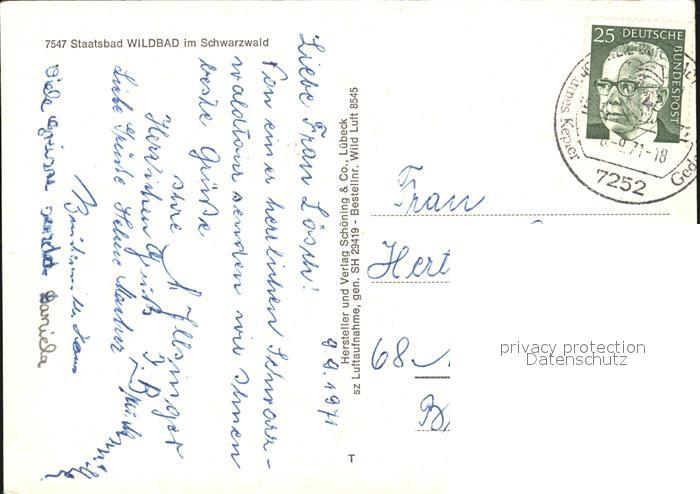 7547 Staatsbad WILDBAD im Schwarzwald
9.9.1971
Liebe Frau Lösch!
Von einer herrlichen Schwarz-
waldtour senden wir Ihnen
beste Grüße
Ihre
Herzlichen Gruß
Liebe Grüße
Viele Grüsse sendet Daniela
Hersteller und Verlag Schöning & Co., Lübeck
sz Luftaufnahme, gen. SH 29419 - Bestellnr. Wild Luft 8545
T
25 DEUTSCHE
BUNDESPOST
Kepler
-9.71-18
7252
Ged
Frau
Hert
68
privacy protection
Datenschutz